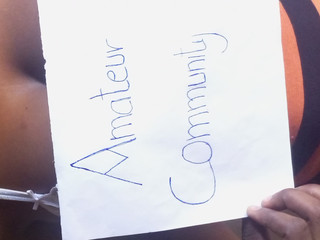 Amateur
Community